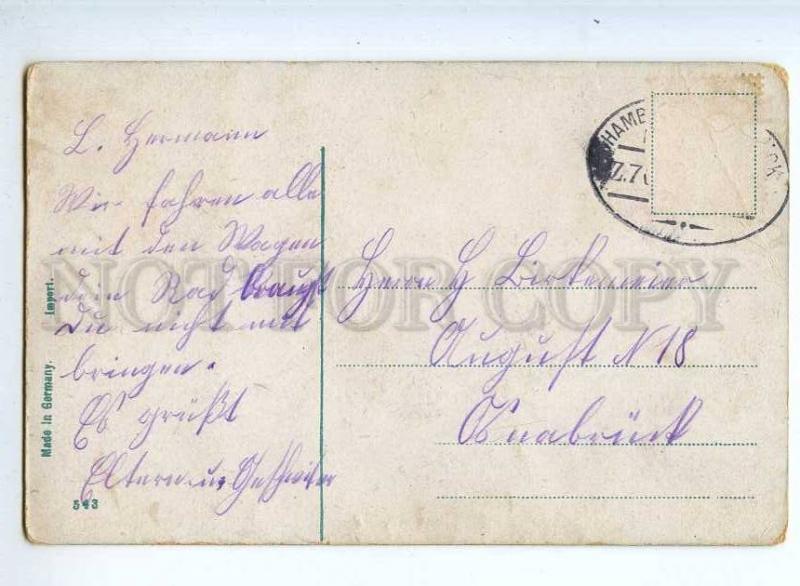 L. Hermann
Wir fahren alle
mit den Wagen
dein Rad brauchst
Du nicht mit
bringen.
Es grüßt
Eltern u. Geschwister
Herrn H Birkemeier
August N 18
Osnabrück
HAMB
Z.7
Made in Germany. Import.
543
NOT FOR COPY